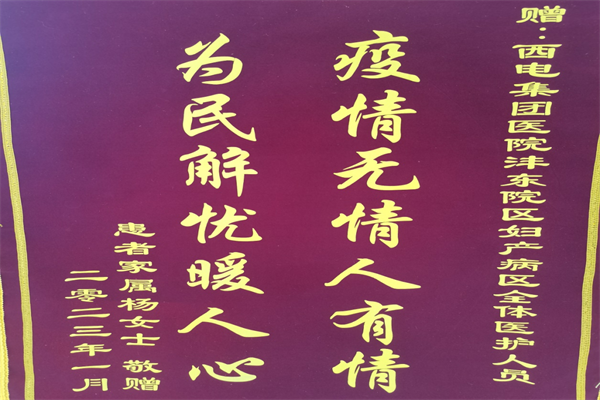 赠：西电集团医院沣东院区妇产病区全体医护人员
疫情无情人有情
为民解忧暖人心
患者家属杨女士 敬赠
二零二三年一月